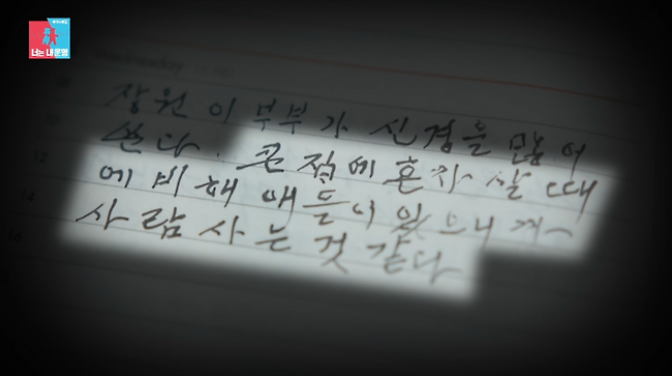 너는 내 운명
장원이 부부가 신경을 많이
쓴다. 큰 집에 혼자 살 때
에 비해 애들이 있으니까
사람 사는 것 같다